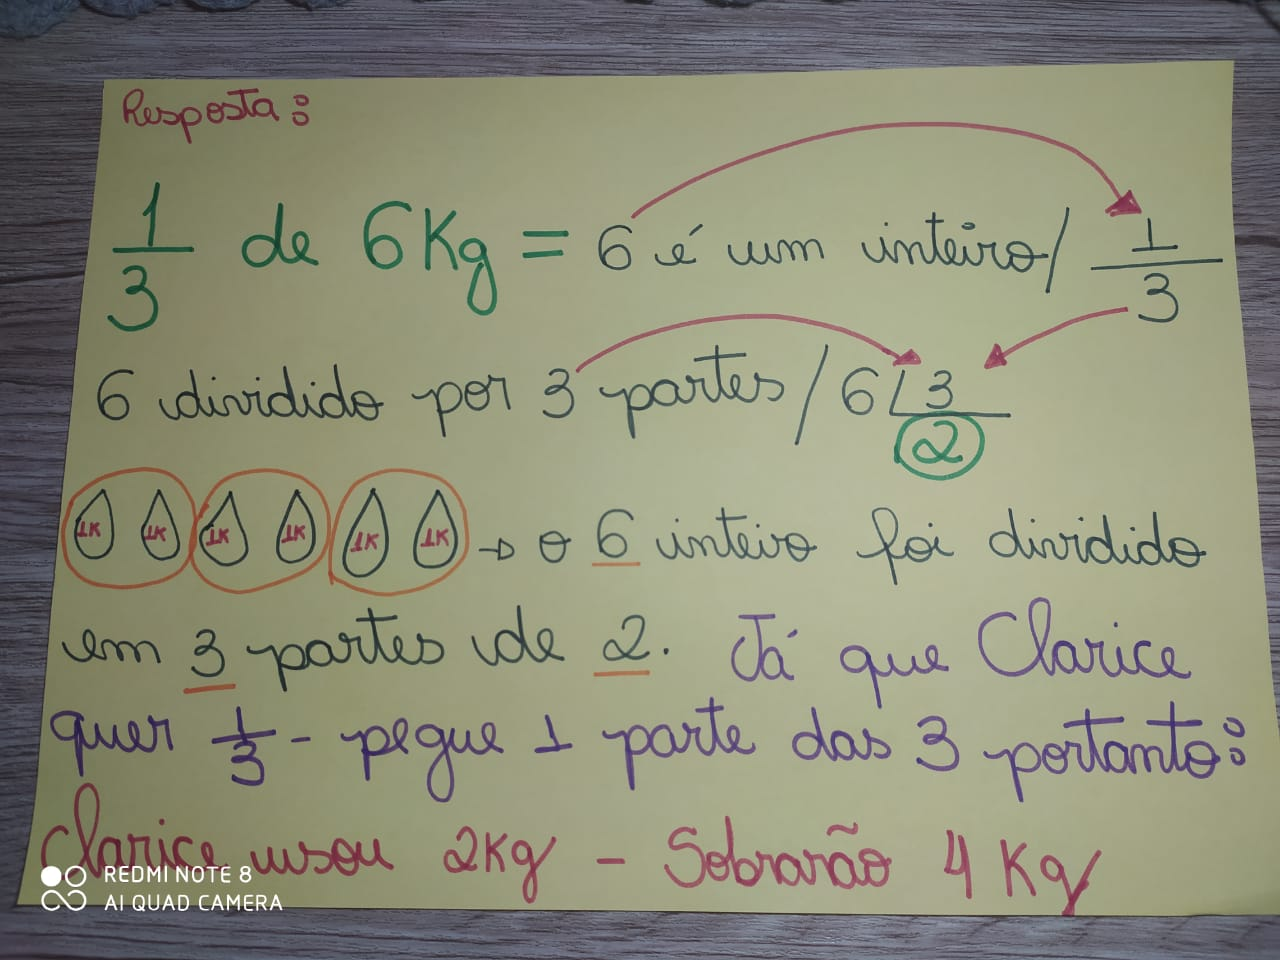 Resposta:
1/3 de 6Kg = 6 é um inteiro/ 1/3
6 dividido por 3 partes / 6 3
2
1K 1K 1K 1K 1K 1K → o 6 inteiro foi dividido
em 3 partes de 2. Já que Clarice
quer 1/3 - pegue 1 parte das 3 portanto:
Clarice usou 2Kg - Sobrarão 4 Kg
REDMI NOTE 8
AI QUAD CAMERA